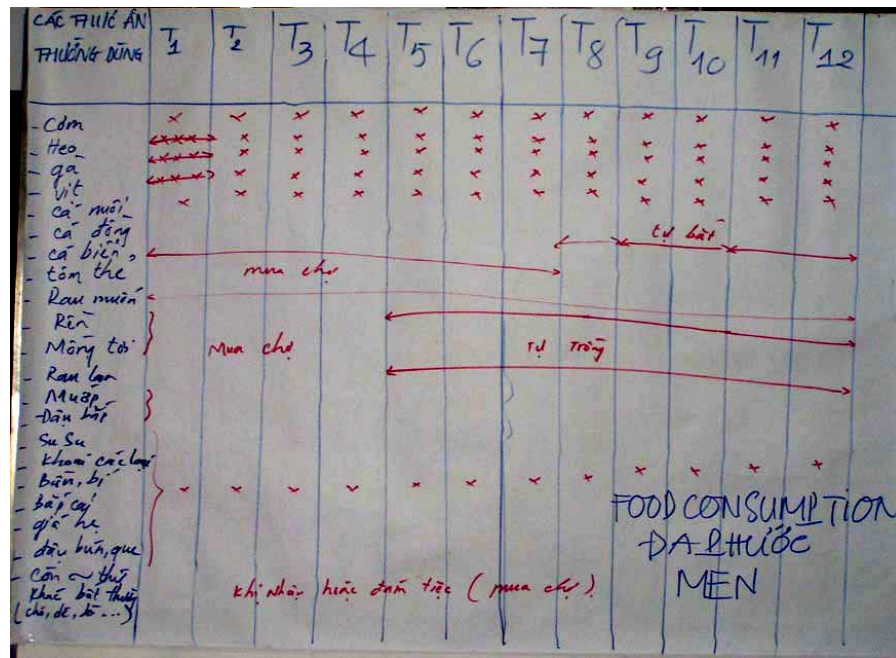 CÁC THỨC ĂN
THƯỜNG DÙNG
T1 T2 T3 T4 T5 T6 T7 T8 T9 T10 T11 T12
- Cơm
- Heo
- gà
- vịt
- cá nuôi
- cá đồng
- cá biển
- tôm thẻ
- Rau muốn
- Rền
- Mồng tơi
- Rau lan
- Mướp
- Đậu bắp
- Su Su
- Khoai các loại
- Bầu, bí
- bắp cải
- giá hẹ
- đậu bún, que
- Còn ~ thứ
khác bất thường
(chó, dê, bò...)
tự bắt
mua chợ
Mua chợ
Tự Trồng
khi nhậu hoặc đám tiệc (mua chợ)
FOOD CONSUMPTION
ĐA PHƯỚC
MEN